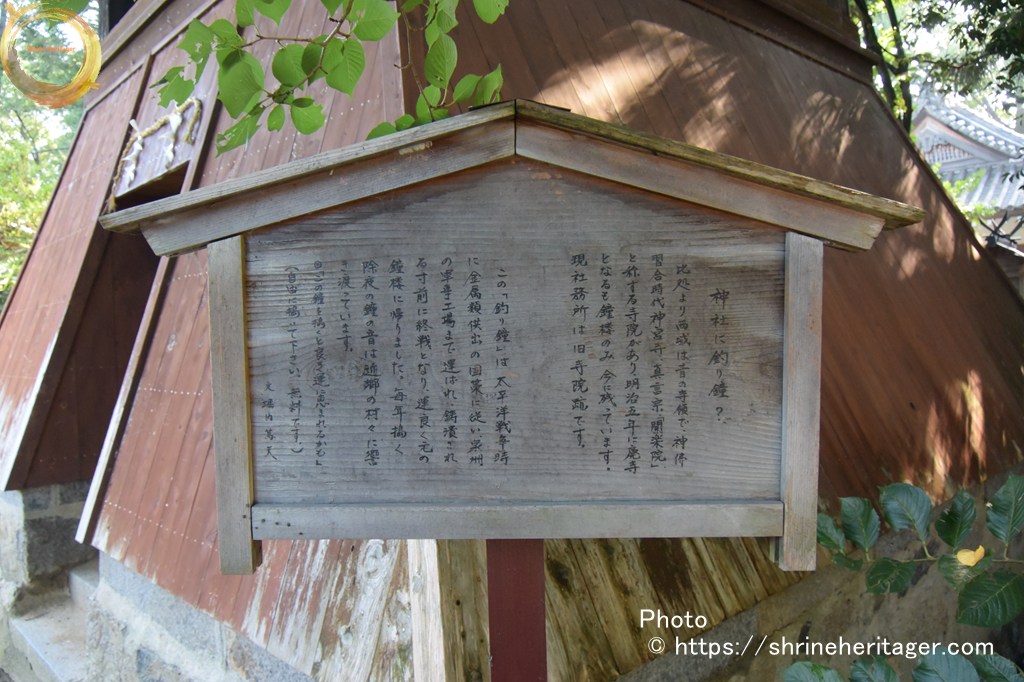 神社に釣り鐘?
此処より西域は昔の寺領で、神佛
習合時代神宮寺、真言宗「開楽院」
と称する寺院があり明治五年に廃寺
となるも鐘楼のみ今に残っています。
現社務所は旧寺院跡です。
この「釣り鐘」は太平洋戦争時
に金属類供出の国策に従い泉州
の軍事工場まで運ばれ、鋳潰され
る寸前に終戦となり、運良く元の
鐘楼に帰りました。毎年撞く
除夜の鐘の音は近郷の村々に響
き渡っています。
の鐘を撞くと良き運に恵まれるかも」
(自由に撞いて下さい、無料です。)
文
Photo
© https://shrineheritager.com